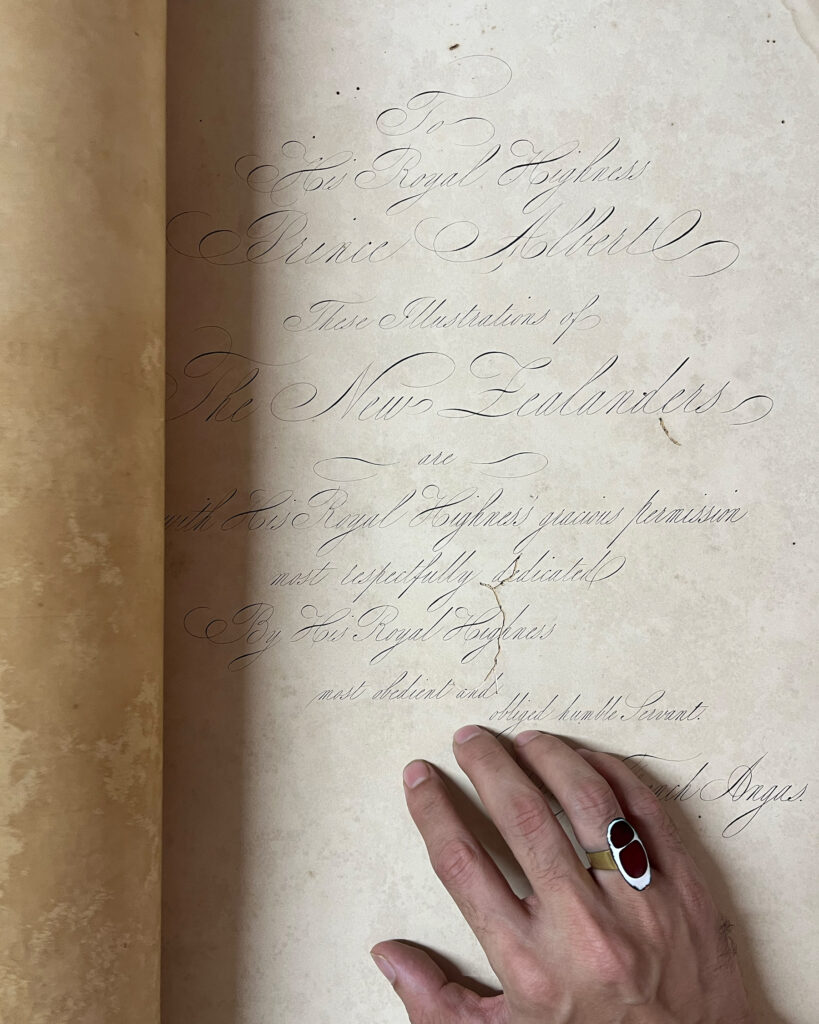 To
His Royal Highness
Prince Albert
These Illustrations of
The New Zealanders
are
with His Royal Highness' gracious permission
most respectfully dedicated
By His Royal Highness
most obedient and
obliged humble Servant.
Angas.